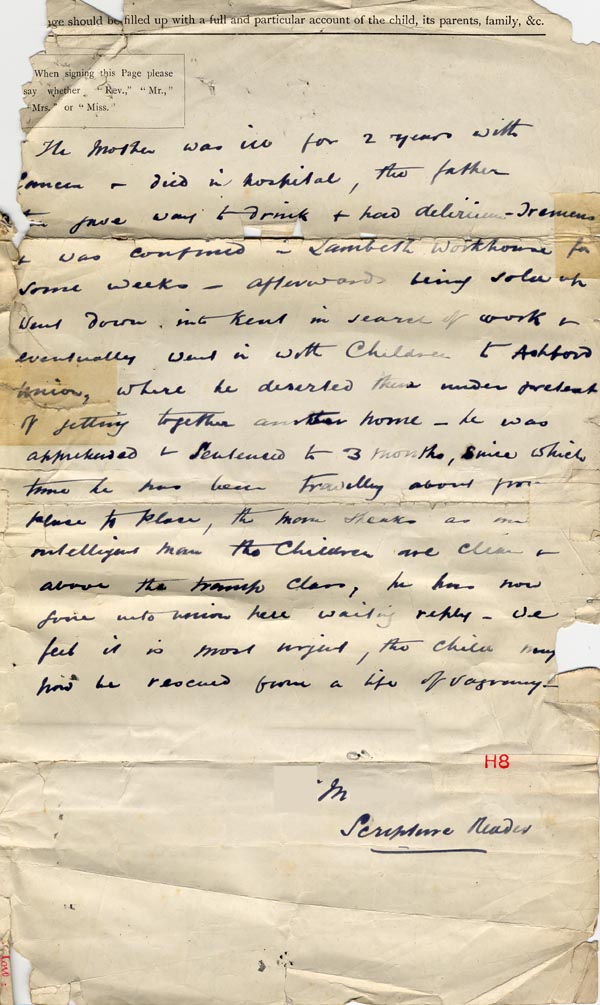 ge should be filled up with a full and particular account of the child, its parents, family, &c.
When signing this Page please
say whether "Rev.," "Mr.,"
"Mrs." or "Miss."
The Mother was ill for 2 years with
Cancer & died in hospital, the father
gave way to drink & had delirium-Tremens
& was confined in Lambeth Workhouse for
some weeks - afterwards being sold up
went down into Kent in search of work &
eventually went in with Children to Ashford
Union, where he deserted them under pretext
of getting together another home - he was
apprehended & sentenced to 3 months, since which
time he has been travelling about from
place to place, the man speaks as an
intelligent man the Children are clean &
above the tramp class, he has now
gone into union here waiting reply - We
feel it is most urgent, the child may
now be rescued from a life of vagrancy -
H8
M
Scripture Reader